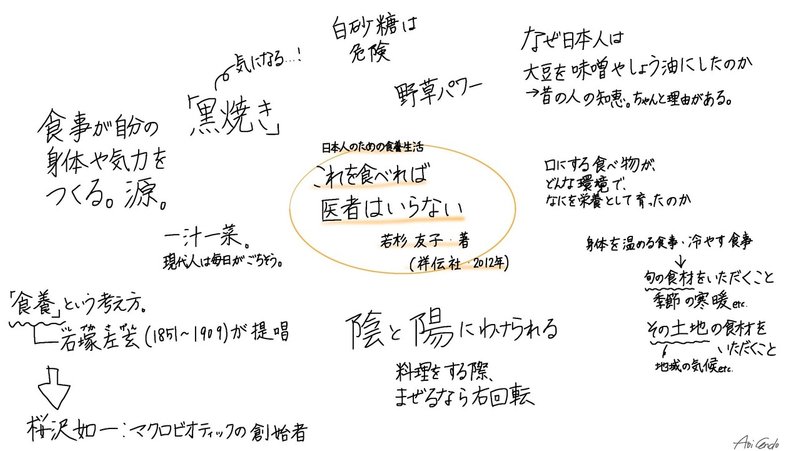 白砂糖は
危険
気になる…!
「黒焼き」
野草パワー
なぜ日本人は
大豆を味噌やしょう油にしたのか
→昔の人の知恵。ちゃんと理由がある。
食事が自分の
身体や気力を
つくる。源。
日本人のための食養生活
これを食べれば
医者はいらない
若杉 友子・著
(祥伝社・2012年)
口にする食べ物が、
どんな環境で、
なにを栄養として育ったのか
一汁一菜。
現代人は毎日がごちそう。
身体を温める食事・冷やす食事
旬の食材をいただくこと
季節の寒暖etc.
その土地の食材を
いただくこと
地域の気候etc.
「食養」という考え方。
石塚左玄(1851〜1909)が提唱
桜沢如一:マクロビオティックの創始者
陰と陽にわけられる
料理をする際、
まぜるなら右回転
Aoi Endo